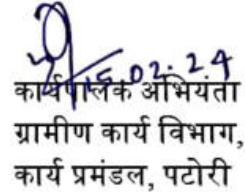 15.02.24
कार्यपालक अभियंता
ग्रामीण कार्य विभाग,
कार्य प्रमंडल, पटोरी